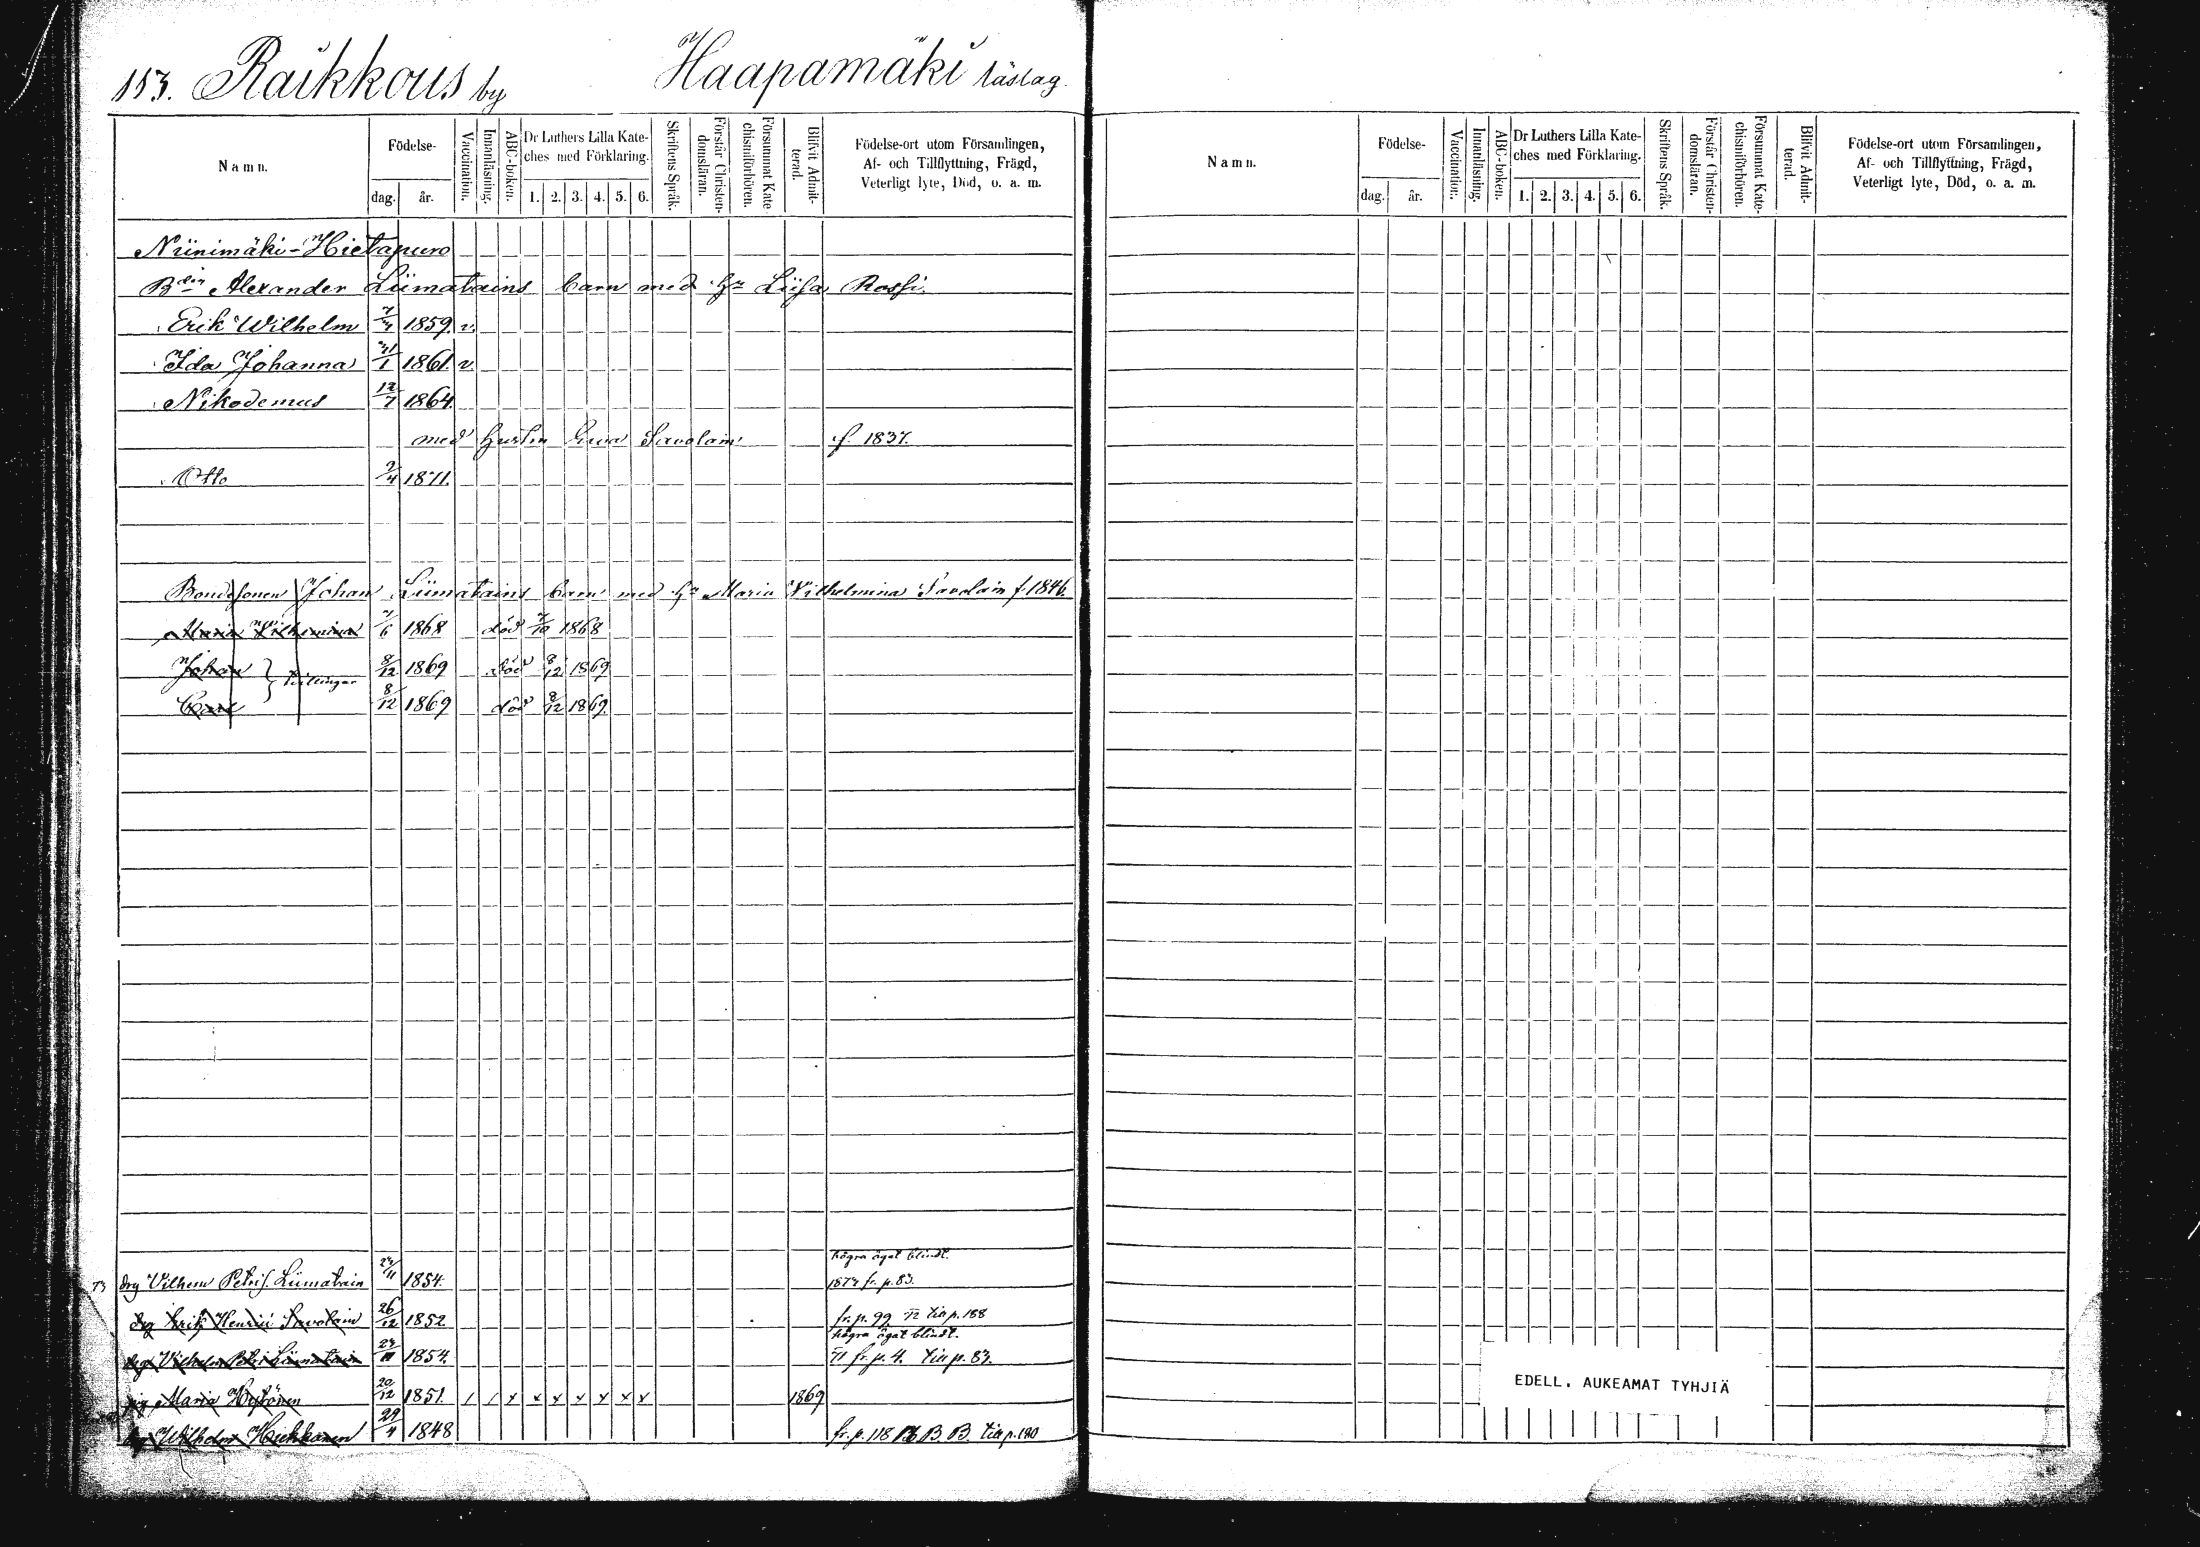 153. Raikkous by Haapamäki läslag.
Namn. Födelse- dag. år. Vaccination. Innanläsning. ABC-boken. Dr Luthers Lilla Kateches med Förklaring. 1. 2. 3. 4. 5. 6. Skriftens Språk. Förstår Christendomsläran. Försummat Katechismiförhören. Blifvit Admitterad. Födelse-ort utom Församlingen, Af- och Tillflyttning, Frägd, Veterligt lyte, Död, o. a. m.
Niinimäki-Hietapuro
Bdn Alexander Liimatains barn med Hu Liisa Rossi.
Erik Wilhelm 1859. v.
Ida Johanna 31/1 1861. v.
Nikodemus 12/7 1864.
med hustru Eva Savolain f. 1837.
Otto 2/4 1871.
Bondesonen Johan Liimatains barn med Hu Maria Vilhelmina Savolain f. 1846.
Maria Vilhelmina 1868 död 1868
Johan } Tvillingar 8/12 1869 död 8/12 1869
Carl 8/12 1869 död 8/12 1869.
högra ögat blindt.
73 drg Vilhem Petrif. Liimatain 24/11 1854. 1873 fr. p. 83.
drg Erik Henrici Savolain 26/12 1852 fr. p. 99 72 till p. 188
högra ögat blindt.
drg Vilhelm Petri Liimatain 24/11 1854. 71 fr. p. 4. till p. 83.
pig Maria Hytönen 20/12 1851. / / x x x x x x x 1869
drg Wilhelm Hiekkanen 29/4 1848 fr. p. 118 B. B. till p. 180
Namn. Födelse- dag. år. Vaccination. Innanläsning. ABC-boken. Dr Luthers Lilla Kateches med Förklaring. 1. 2. 3. 4. 5. 6. Skriftens Språk. Förstår Christendomsläran. Försummat Katechismiförhören. Blifvit Admitterad. Födelse-ort utom Församlingen, Af- och Tillflyttning, Frägd, Veterligt lyte, Död, o. a. m.
EDELL. AUKEAMAT TYHJIÄ